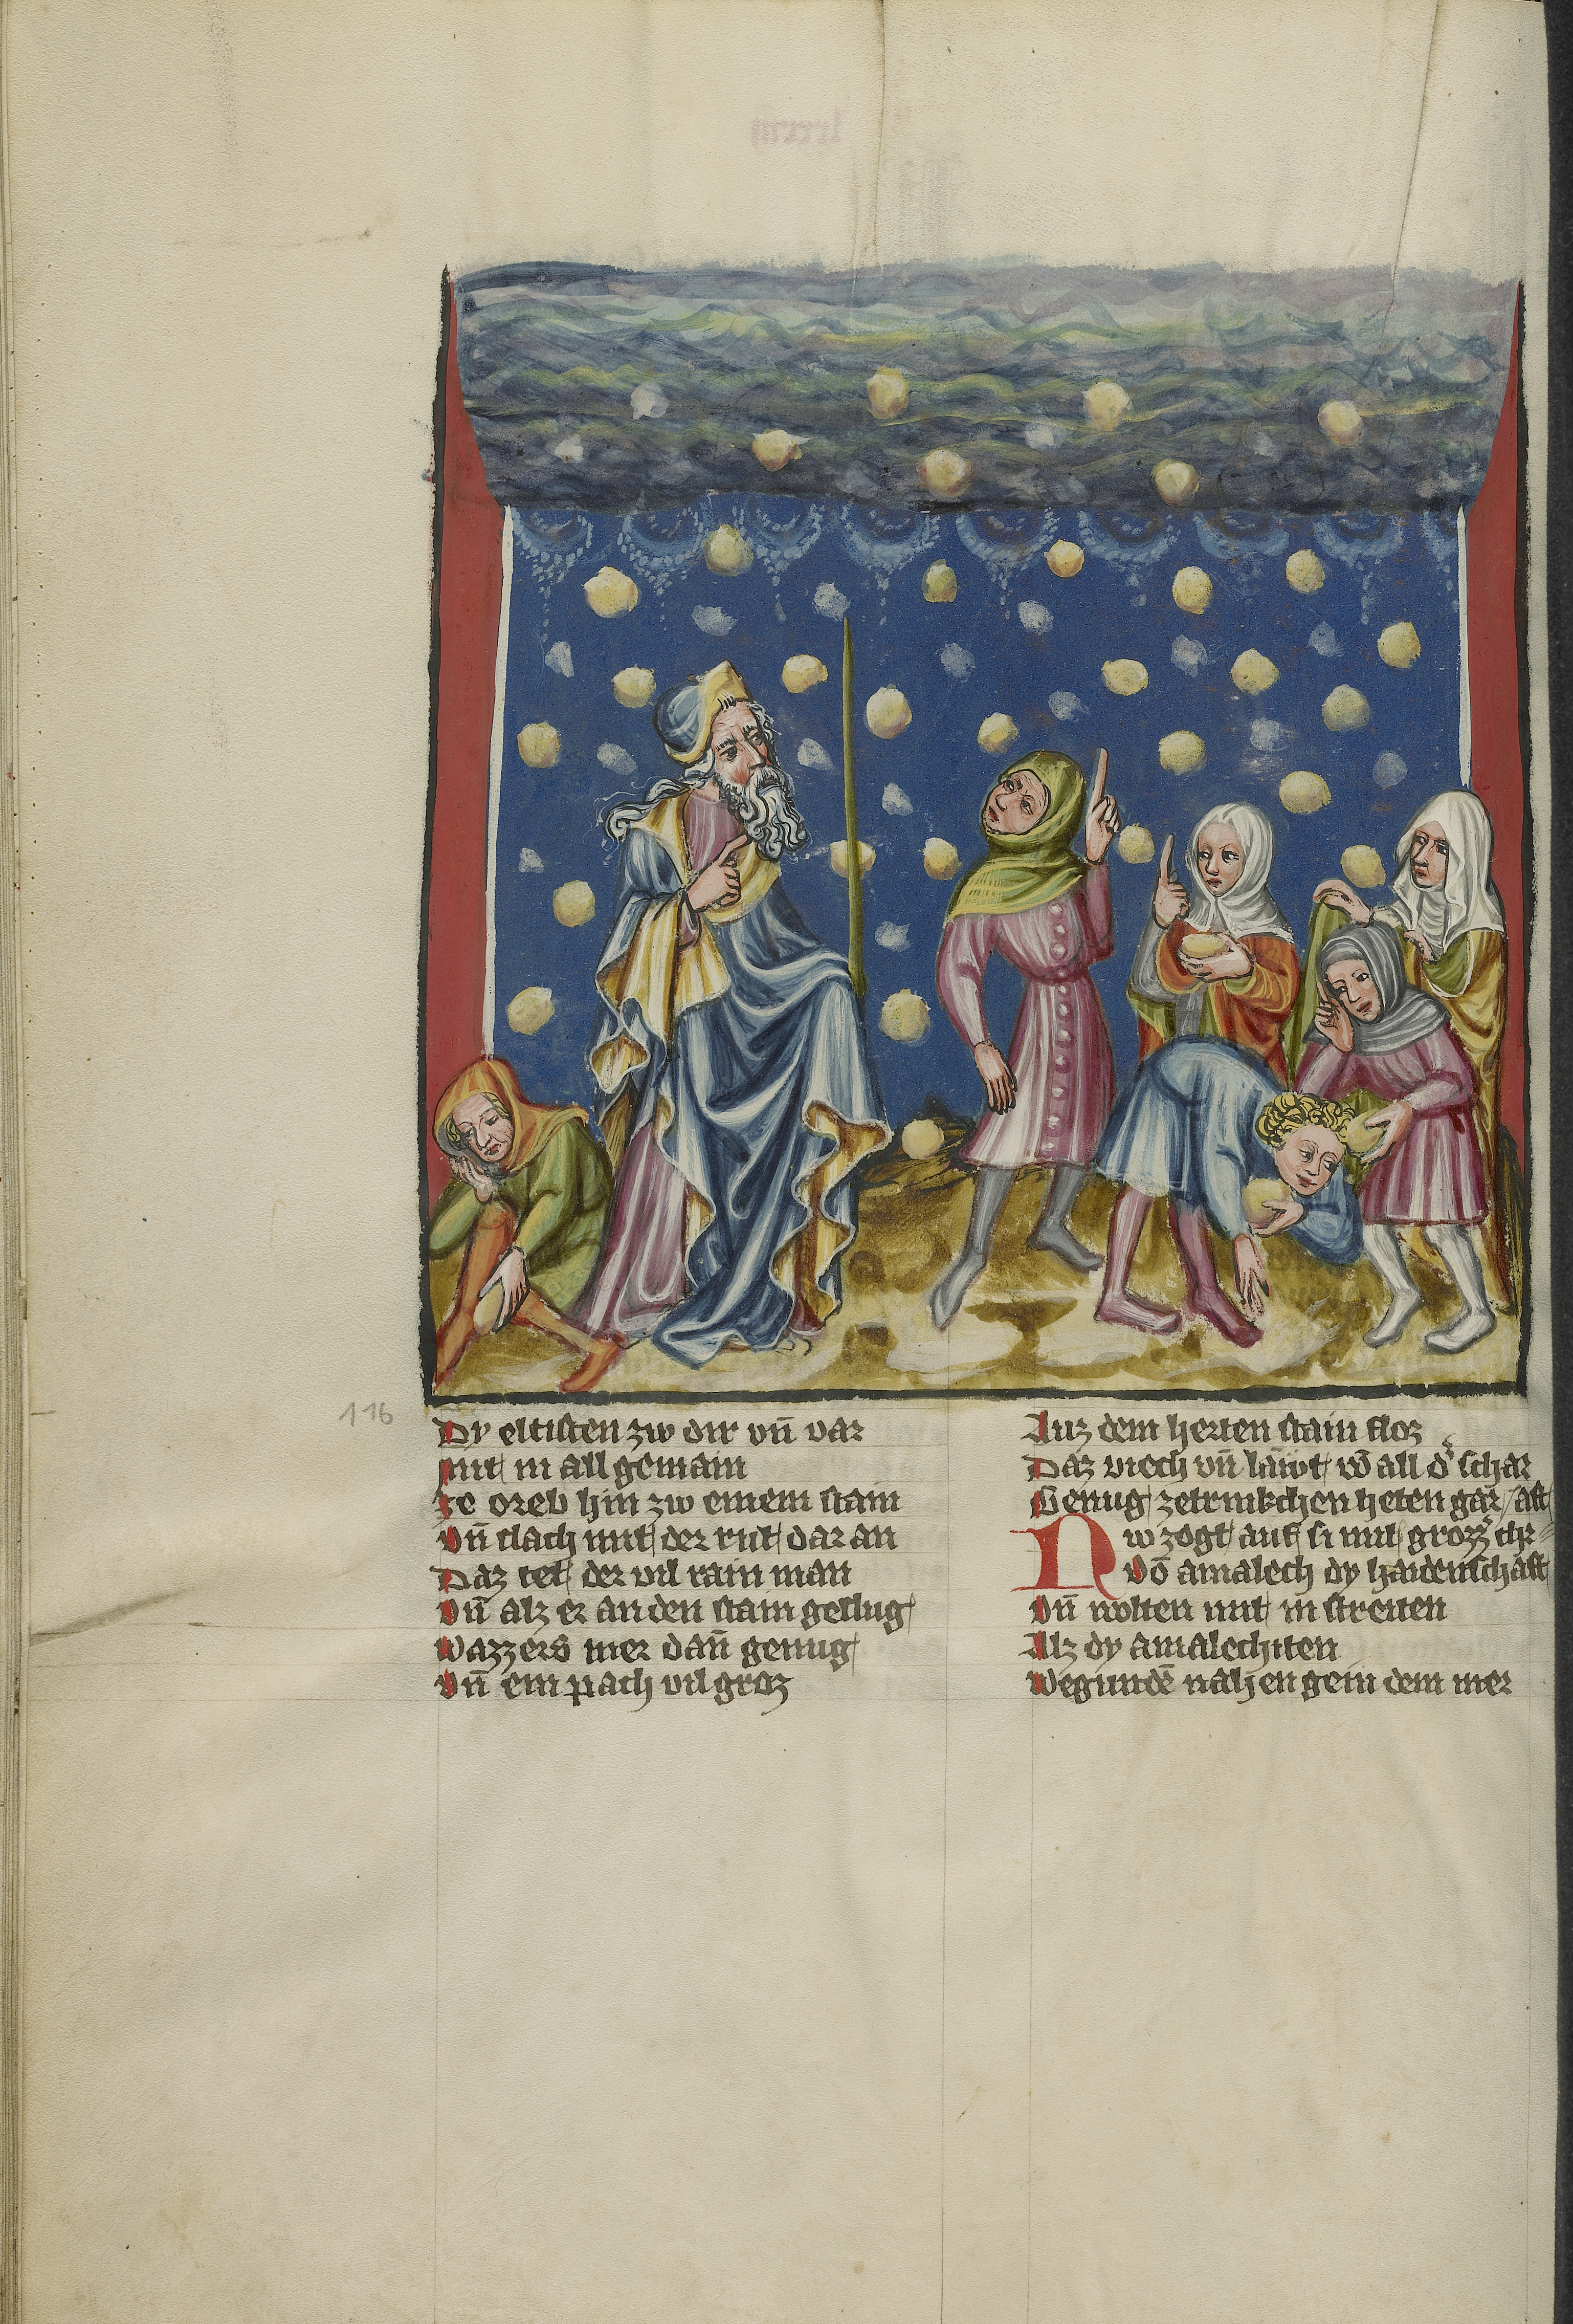 116
Dy eltisten zw dir vn̄ var
mit in all gemain
ze oreb hin zw einem stain
Vn̄ slach mit der rut dar an
Daz tet der vil rain man
Vn̄ alz er an den stain geslug
Wazzers mer dan̄ genug
Vn̄ ein pach vil groz
Auz dem herten stain floz
Daz viech vn̄ läwt vō all d' schar
Genug zetrinkchen heten gar
Nw zogt auf si mit grozz' chr-
aft
Vō amalech dy haidenschaft
Vn̄ wolten mit in streiten
Alz dy amalechiten
Wegundē nahen gein dem mer